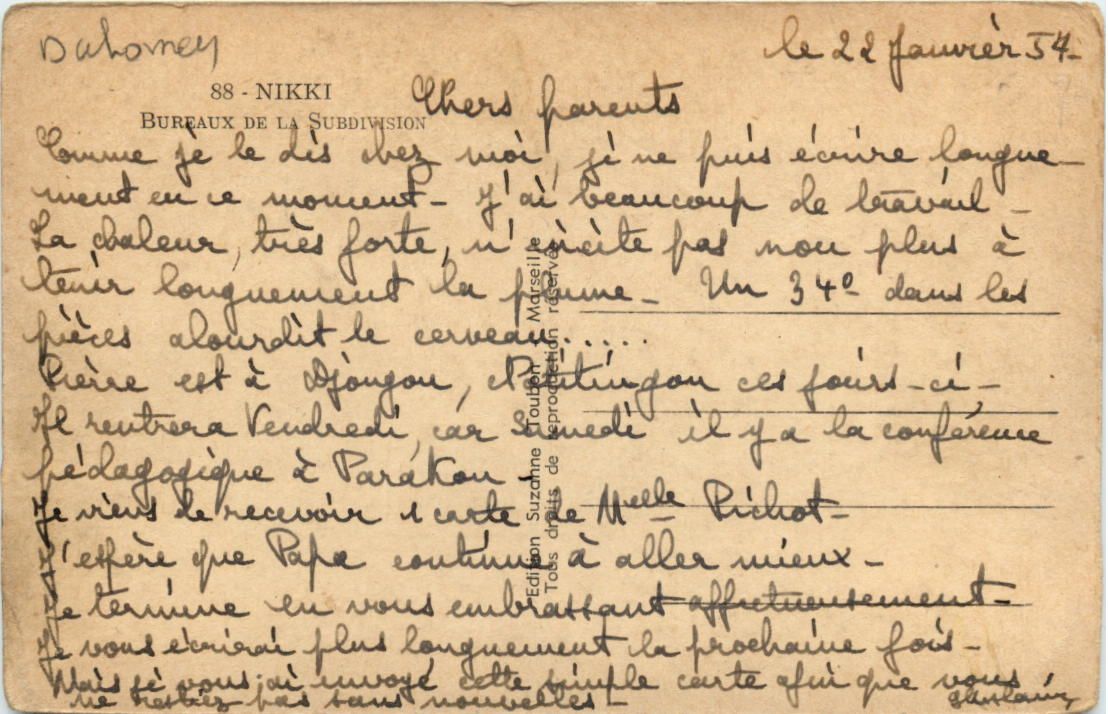 Dahomey
le 22 Janvier 54-
88 - NIKKI
BUREAUX DE LA SUBDIVISION
Chers parents
Comme je le dis chez moi, je ne puis écrire longue-
ment en ce moment - J'ai beaucoup de travail -
La chaleur, très forte, n'incite pas non plus à
tenir longuement la plume - Un 34° dans les
pièces alourdit le cerveau.....
Pierre est à Djougou, Natitingou ces jours-ci -
Il rentrera Vendredi, car Samedi il y a la conférence
pédagogique à Parakou -
Je viens de recevoir 1 carte de Melle Pichot -
J'espère que Papa continue à aller mieux -
Je termine en vous embrassant affectueusement -
Je vous écrirai plus longuement la prochaine fois -
Mais je vous ai envoyé cette simple carte afin que vous
ne restiez pas sans nouvelles -
Ghislaine
Edition Suzanne Toubon Marseille
Tous droits de reproduction réservés